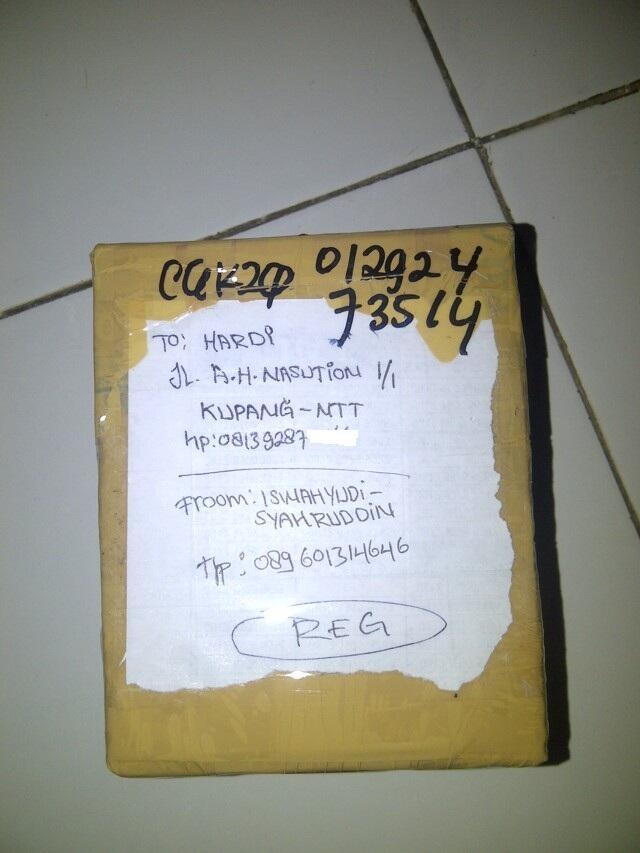 CGK20 012924
73514
TO: HARDI
JL. A.H. NASUTION 1/1
KUPANG-NTT
Hp: 08139287
FROOM: ISWAHYUDI-
SYAHRUDDIN
Hp: 089601314646
REG